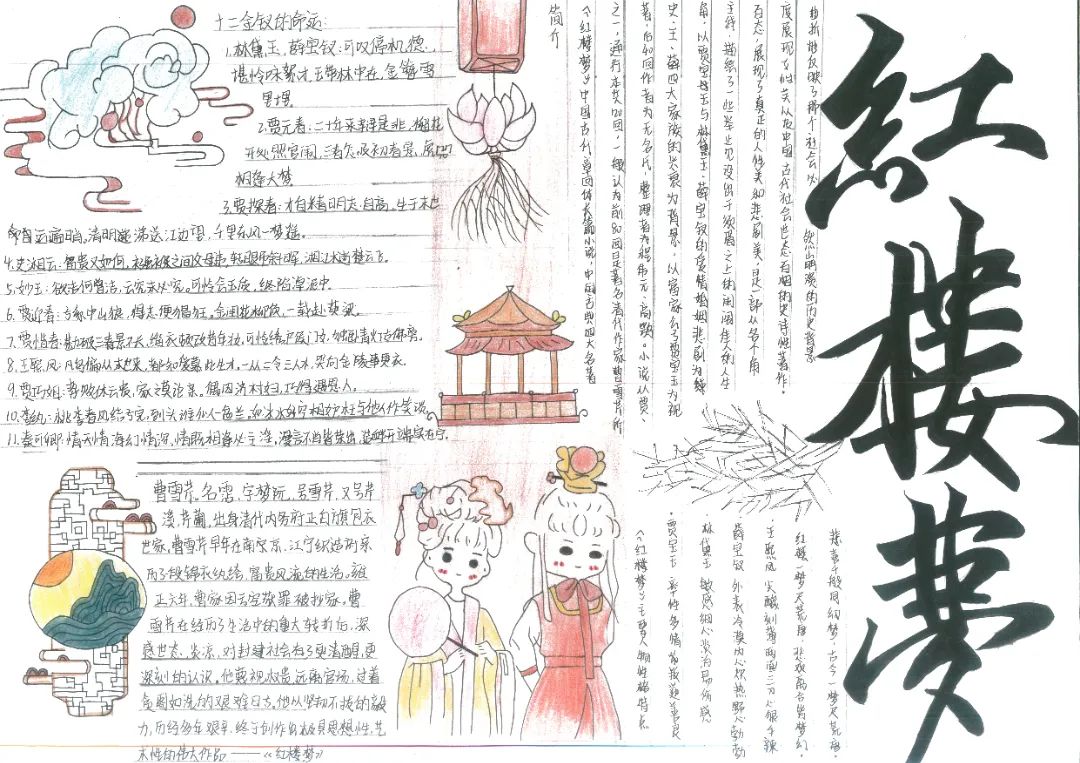 紅樓夢
曲折地反映了那个社会必然崩溃的历史趋势
度展现女性美以及中国古代社会世态百相的史诗性著作。
百态,展现了真正的人性美和悲剧美,是一部从各个角
主线,描绘了一些举止见识出于须眉之上的闺阁佳人的人生
角,以贾宝玉与林黛玉、薛宝钗的爱情婚姻悲剧为主线
史、王、薛四大家族的兴衰为背景,以富家公子贾宝玉为视
著,后40回作者为无名氏,整理者为程伟元、高鹗。小说以贾、
之一,通行本共120回,一般认为前80回是清代作家曹雪芹所
《红楼梦》中国古代章回体长篇小说,中国古典四大名著
简介
十二金钗的命运:
1.林黛玉、薛宝钗:可叹停机德,
堪怜咏絮才,玉带林中挂,金簪雪
里埋
2.贾元春:二十年来辨是非,榴花
开处照宫闱,三春怎及初春景,虎兕
相逢大梦
3.贾探春:才自精明志自高,生于末世
运偏消,清明涕送江边望,千里东风一梦遥。
4.史湘云:富贵又如何,襁褓之间父母违,展眼吊斜晖,湘江水逝楚云飞。
5.妙玉:欲洁何曾洁,云空未必空,可怜金玉质,终陷淖泥中
6.贾迎春:子系中山狼,得志便猖狂,金闺花柳质,一载赴黄粱。
7.贾惜春:勘破三春景不长,缁衣顿改昔年妆,可怜绣户侯门女,独卧青灯古佛旁。
8.王熙凤:凡鸟偏从末世来,都知爱慕此生才,一从二令三人木,哭向金陵事更哀。
9.贾巧姐:势败休云贵,家亡莫论亲。偶因济村妇,巧得遇恩人。
10.李纨:桃李春风结子完,到头谁似一盆兰,如冰水好空相妒,枉与他人作笑谈
11.秦可卿:情天情海幻情深,情既相逢必主淫,漫言不肖皆荣出,造衅开端实在宁。
曹雪芹,名霑,字梦阮,号雪芹,又号芹
溪,芹圃,出身清代内务府正白旗包衣
世家,曹雪芹早年在南京江宁织造府亲
历了一段锦衣纨绔,富贵风流的生活。雍
正六年,曹家因亏空获罪被抄家。曹
雪芹在经历了生活中的重大转折后,深
感世态炎凉,对封建社会有了更清醒,更
深刻的认识。他蔑视权贵,远离官场,过着
的艰难日子。他以坚韧不拔的毅
力,历经多年艰辛,终于创作出极具思想性,艺
术性的伟大作品——《红楼梦》
悲喜千般同幻梦,古今一梦尽荒唐
王熙凤 尖酸刻薄
薛宝钗 外表冷漠内心炽热
林黛玉 敏感细心
贾宝玉
《红楼梦》主要人物性格特点